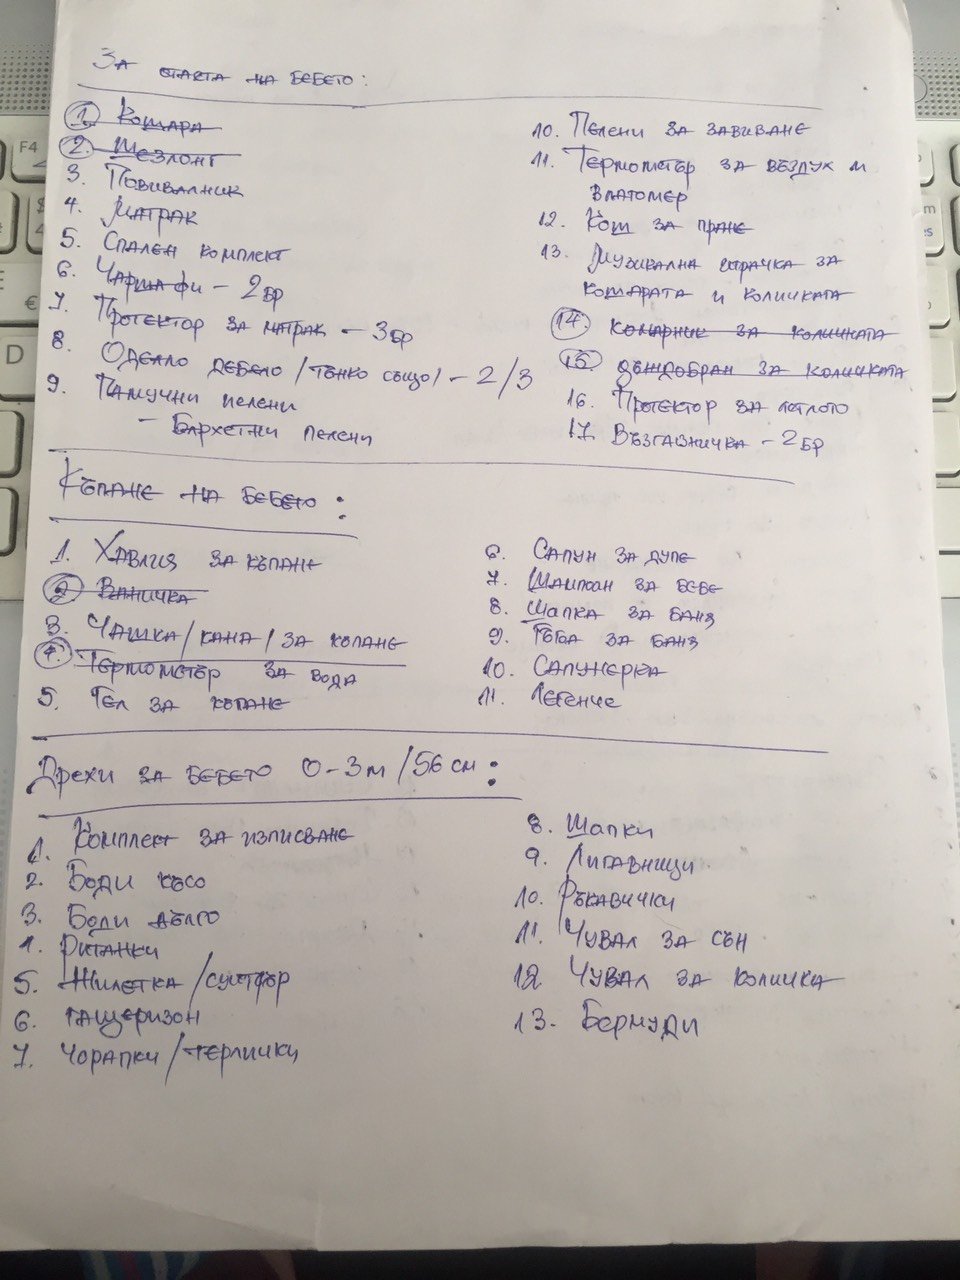 За стаята на бебето:
1. Кошара
2. Шезлонг
3. Повивалник
4. Матрак
5. Спален комплект
6. Чаршафи - 2бр
7. Протектор за матрак - 3бр
8. Одеяло дебело /тънко също/ - 2/3
9. Памучни пелени
- Бархетни пелени
10. Пелени за завиване
11. Термометър за въздух и
влагомер
12. Кош за пране
13. Музикална играчка за
кошарата и количката
14. комарник за количката
15. дъждобран за количката
16. Протектор за леглото
17. Възглавничка - 2бр
Къпане на бебето:
1. Хавлия за къпане
2. Ваничка
3. Чашка/кана/за къпане
4. Термометър за вода
5. Гел за къпане
6. Сапун за дупе
7. Шампоан за бебе
8. Шапка за баня
9. Гъба за баня
10. Сапунерка
11. Легенче
Дрехи за бебето 0-3м/56см:
1. Комплект за изписване
2. Боди късо
3. Боди дълго
4. Ританки
5. Жилетка/суитшър
6. гащеризон
7. Чорапки/терлички
8. Шапки
9. Лигавници
10. Ръкавички
11. Чувал за сън
12 Чувал за количка
13. Бермуди